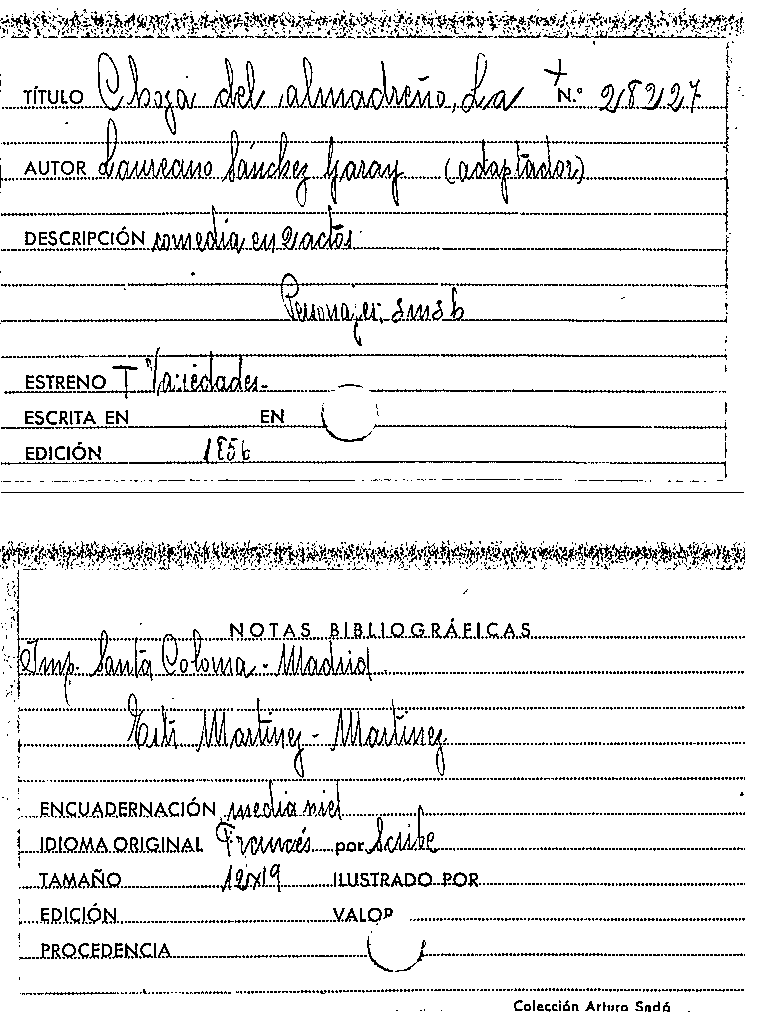 TÍTULO Choza del almadreño, La N.º 28227
AUTOR Laureano Sánchez Garay (adaptador)
DESCRIPCIÓN comedia en 2 actos
Personajes, 3m3h
ESTRENO T Variedades
ESCRITA EN EN
EDICIÓN 1856
NOTAS BIBLIOGRÁFICAS
Imp. Santa Coloma - Madrid
Martínez - Martínez
ENCUADERNACIÓN media piel
IDIOMA ORIGINAL Francés por Scribe
TAMAÑO 12x19 ILUSTRADO POR
EDICIÓN VALOR
PROCEDENCIA
Colección Arturo Sedó